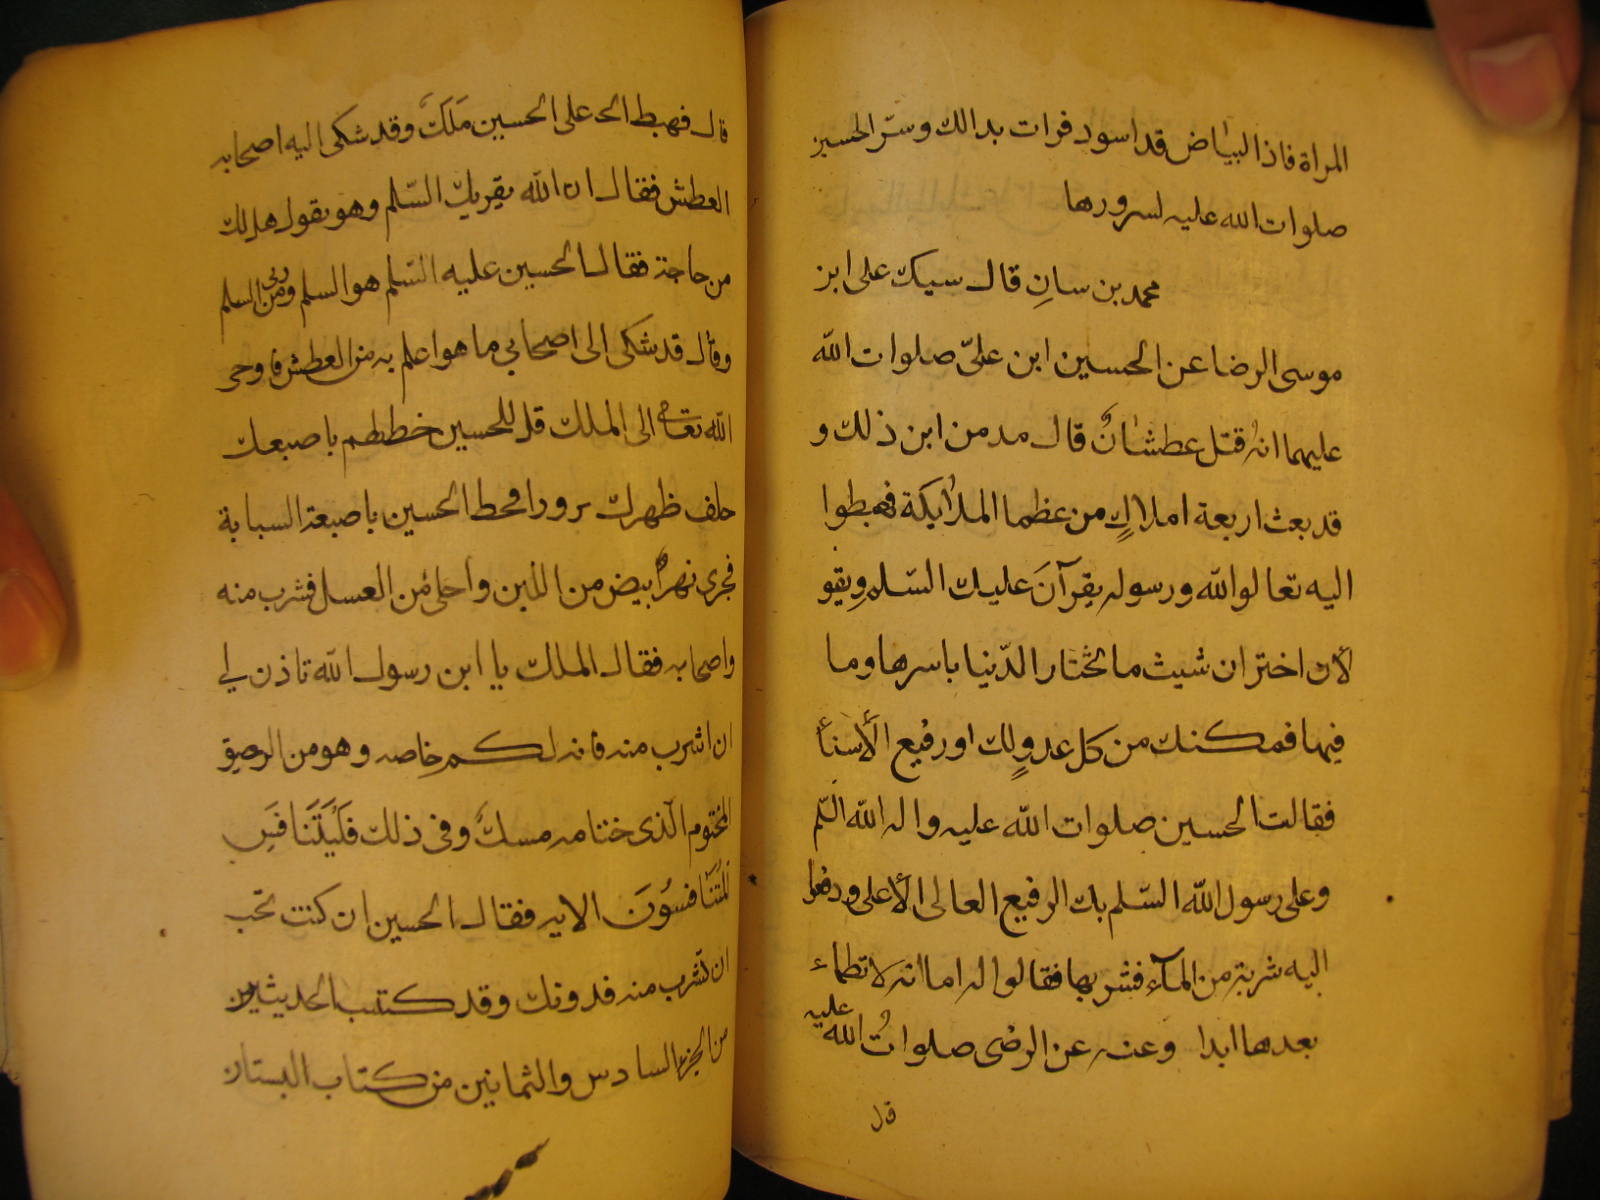 المراة فاذا البياض قد اسود فرات بدالك وسر الحسين
صلوات الله عليه لسرورها
محمد بن سان قال سيك على ابن
موسى الرضا عن الحسين ابن علىّ صلوات الله
عليهما انه قتل عطشانٌ قال مد من ابن ذلك و
قد بعث اربعة املاكٍ من عظما الملايكة فهبطوا
اليه تعالوا لله ورسوله يقرآن عليك السّلم ويقو
لان اختر ان شيت ما تختار الدّنيا باسرها وما
فيها فمكنك من كل عدوٍ لك او رفيع الأسنأ
فقالت الحسين صلوات الله عليه واله الله
وعلى رسول الله السّلم بك الرفيع العالى الأعلى ودفعوا
اليه شربة من المآء فشربها فقالوا له اما انه لا تظماء
بعدها ابدا وعنه عن الرضى صلوات الله عليه
قال
قال فهبط الى على الحسين مَلَكٌ وقد شكى اليه اصحابه
العطش فقال ان الله يقريك السّلم وهو يقول هل لك
من حاجة فقال الحسين عليه السّلم هو السلم ومن ربى السلم
وقال قد شكى الى اصحابي ما هو اعلم به من العطش فاوحى
الله تعالى الى الملك قل للحسين خط لهم باصبعك
خلف ظهرك يرووا فخط الحسين باصبعه السبابة
فجرى نهرٌ ابيض من اللبن واحلى من العسل فشرب منه
واصحابه فقال الملك يا ابن رسول الله تاذن لي
ان اشرب منه فانه لكم خاصه وهو من الرحيق
المختوم الّذى ختامه مسكٌ وفى ذلك فَليَتَنافَسِ
المُتَنَافسُونَ الايه فقال الحسين ان كنت تحب
ان تشرب منه فدونك وقد كتبت الحديثين
من الجزء السادس والثمانين من كتاب البستان